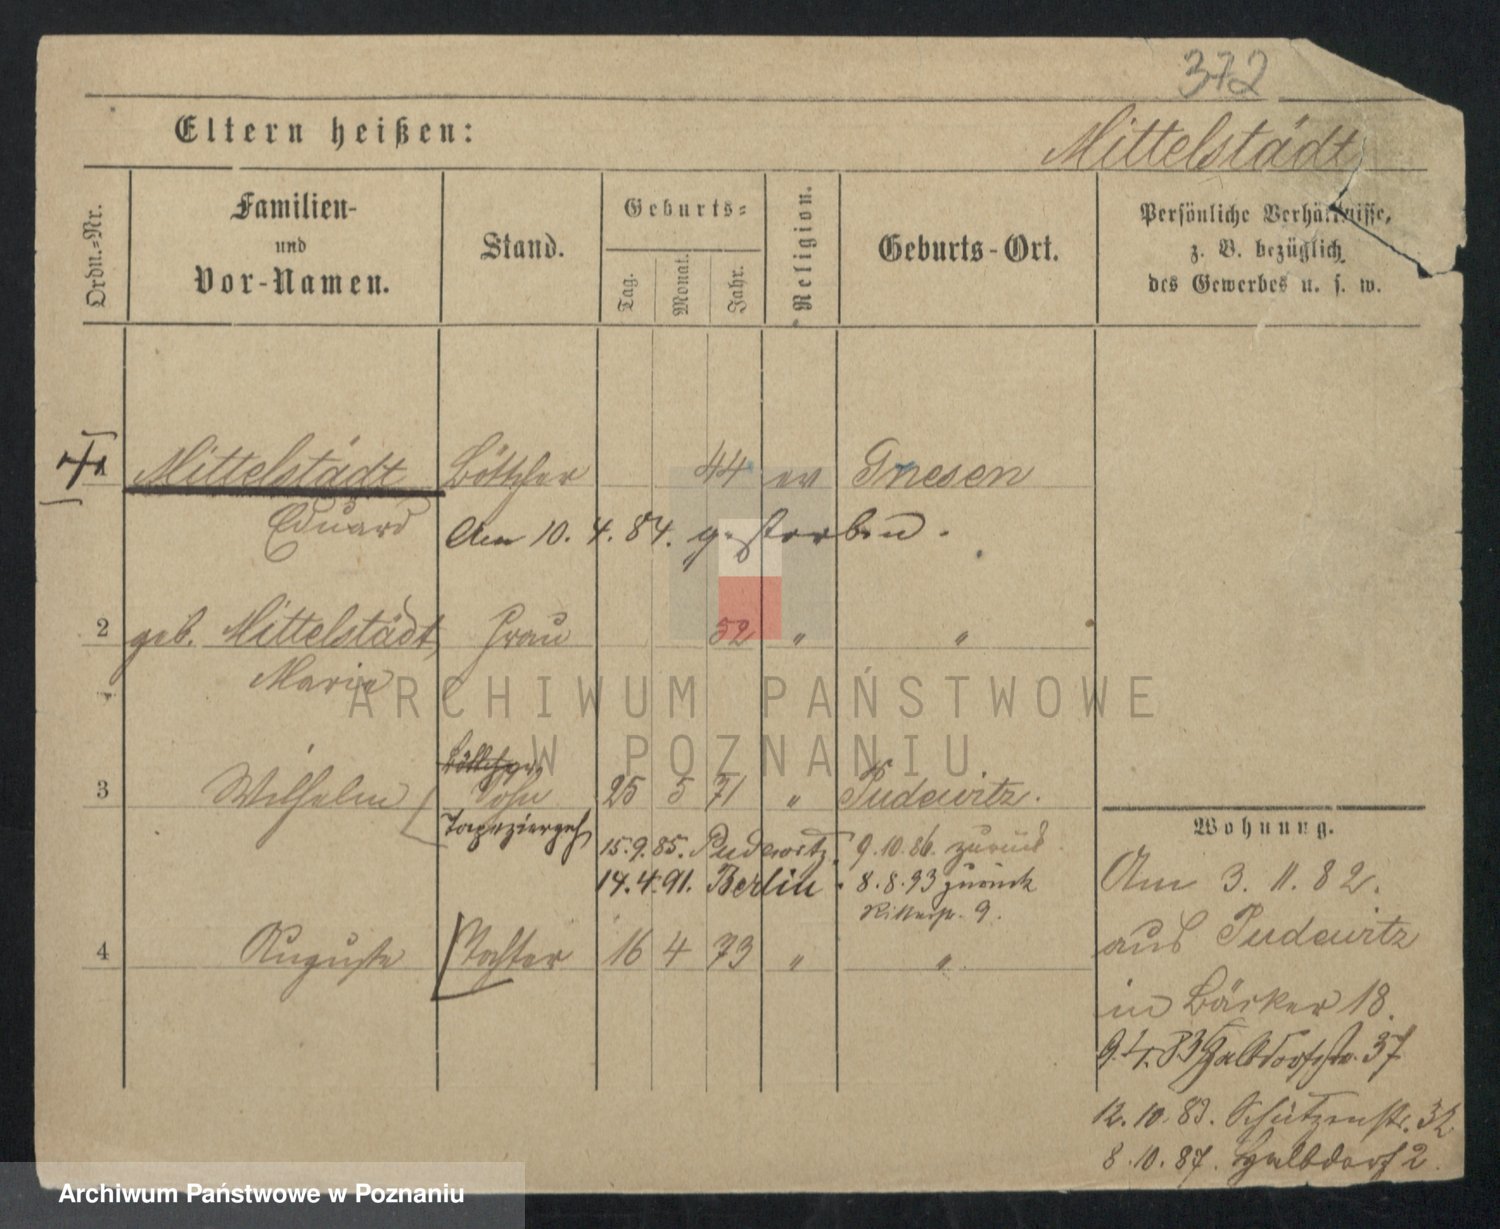 372
Eltern heißen:
Mittelstädt
Ordn.-Nr.
Familien-
und
Vor-Namen.
Stand.
Geburts-
Tag.
Monat.
Jahr.
Religion.
Geburts-Ort.
Persönliche Verhältnisse,
z. B. bezüglich
des Gewerbes u. s. w.
1 Mittelstädt Böttcher 44 ev Gnesen
Eduard Am 10. 4. 84. gestorben.
2 geb. Mittelstädt, Frau 52 " "
Marie
ARCHIWUM PAŃSTWOWE
W POZNANIU
Böttcher
3 Wilhelm Sohn 25 5 71 " Pudewitz.
Tapeziergeh
15.9.85. Pudewitz. 9.10.86. zurück.
14.4.91. Berlin. 8.8.93 zurück
Ritterstr. 9.
4 Auguste Tochter 16 4 73 " "
Wohnung.
Am 3. 11. 82.
aus Pudewitz
in Bäcker 18.
9.4.83 Halbdorfstr. 37
12.10.83. Schützenstr. 32
8.10.87. Halbdorf 2.
Archiwum Państwowe w Poznaniu